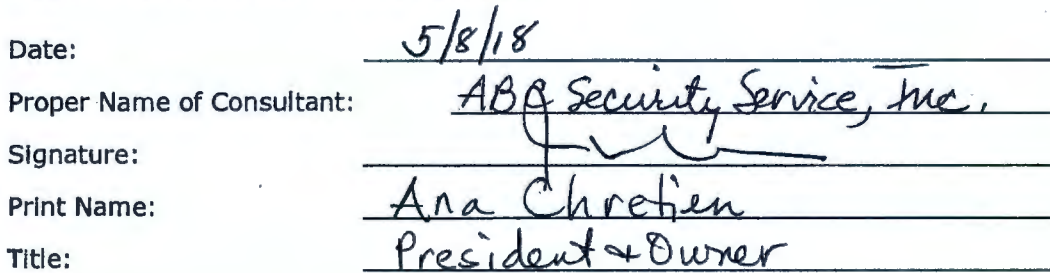 Date: 5/8/18
Proper Name of Consultant: ABC Security Service, Inc.
Signature:
Print Name: Ana Chretien
Title: President + Owner